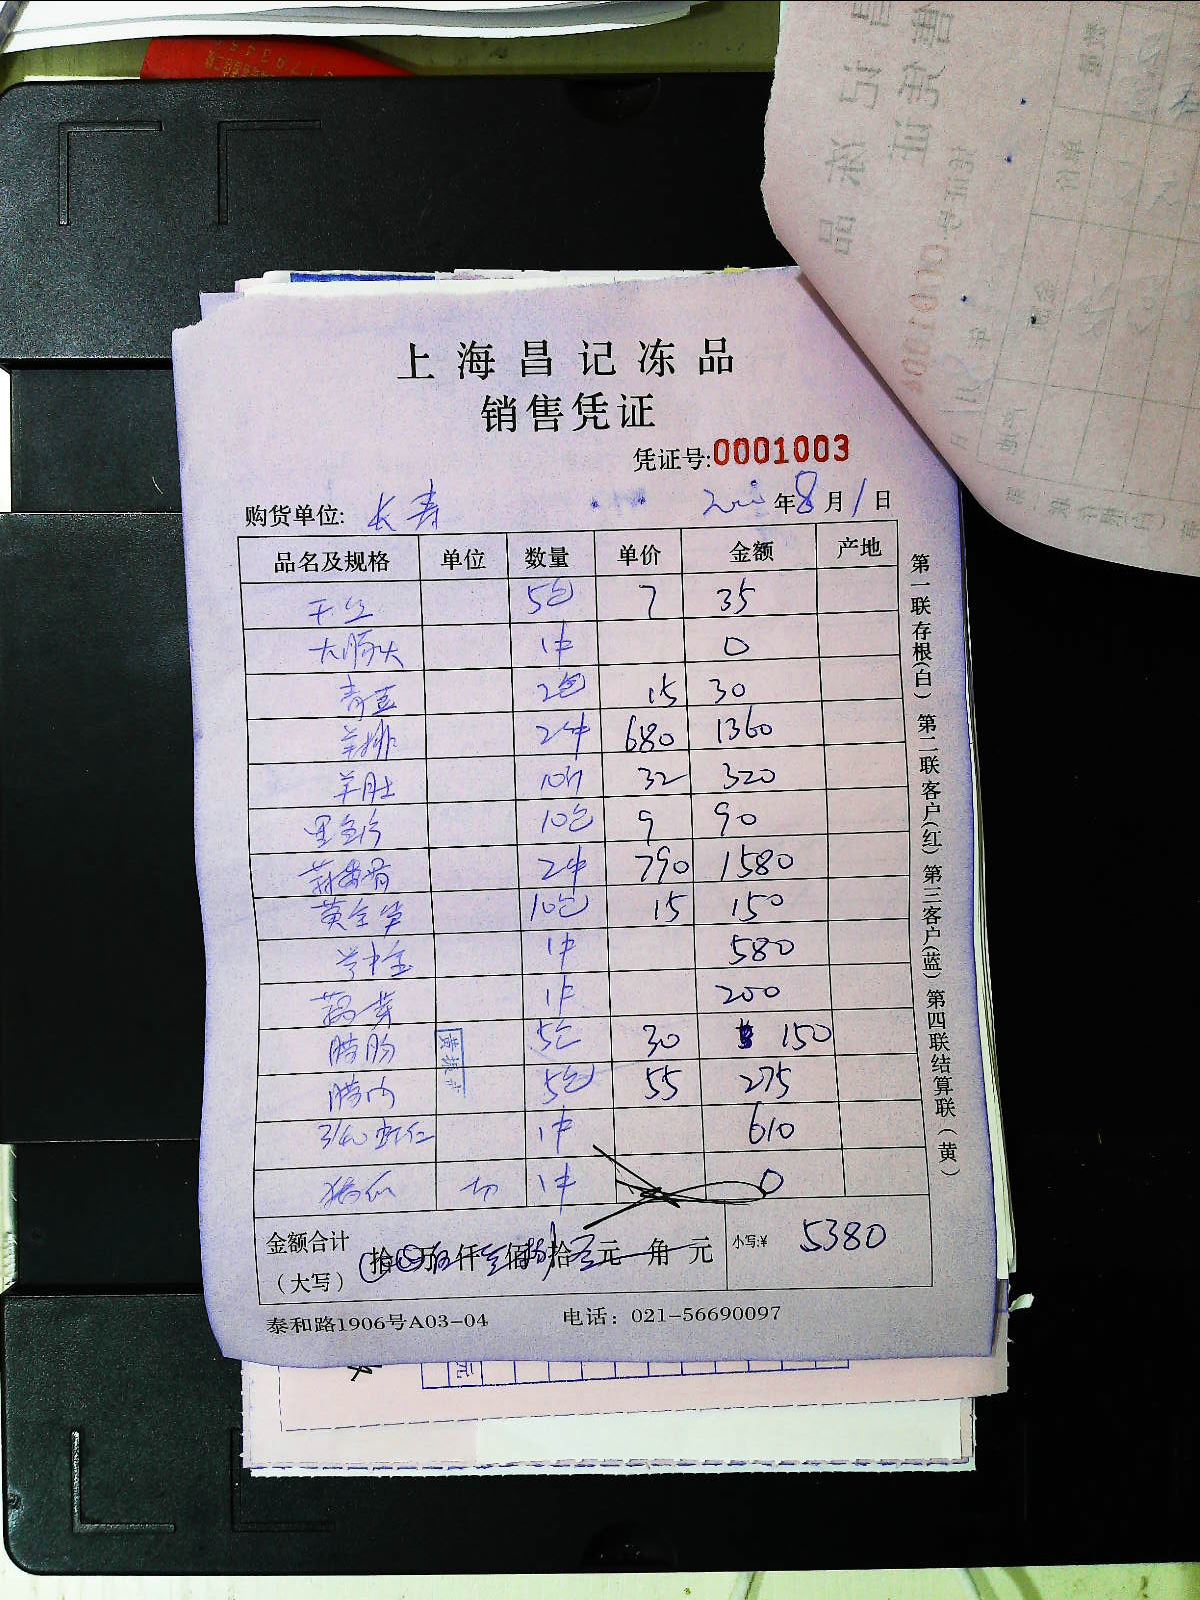 上海昌记冻品
销售凭证
凭证号:0001003
购货单位: 长寿 年8月1日
品名及规格 单位 数量 单价 金额 产地
干丝 5包 7 35
1件 0
青豆 2包 15 30
羊排 2件 680 1360
羊肚 10斤 32 320
10包 9 90
2件 790 1580
黄金笋 10包 15 150
1件 580
1件 200
腊肠 5包 30 150
腊肉 5包 55 275
虾仁 1件 610
1件 0
金额合计
(大写) 拾 万 仟 佰 拾 元 角 元 小写:¥ 5380
泰和路1906号A03-04 电话: 021-56690097
第一联存根(白) 第二联客户(红) 第三客户(蓝) 第四联结算联(黄)